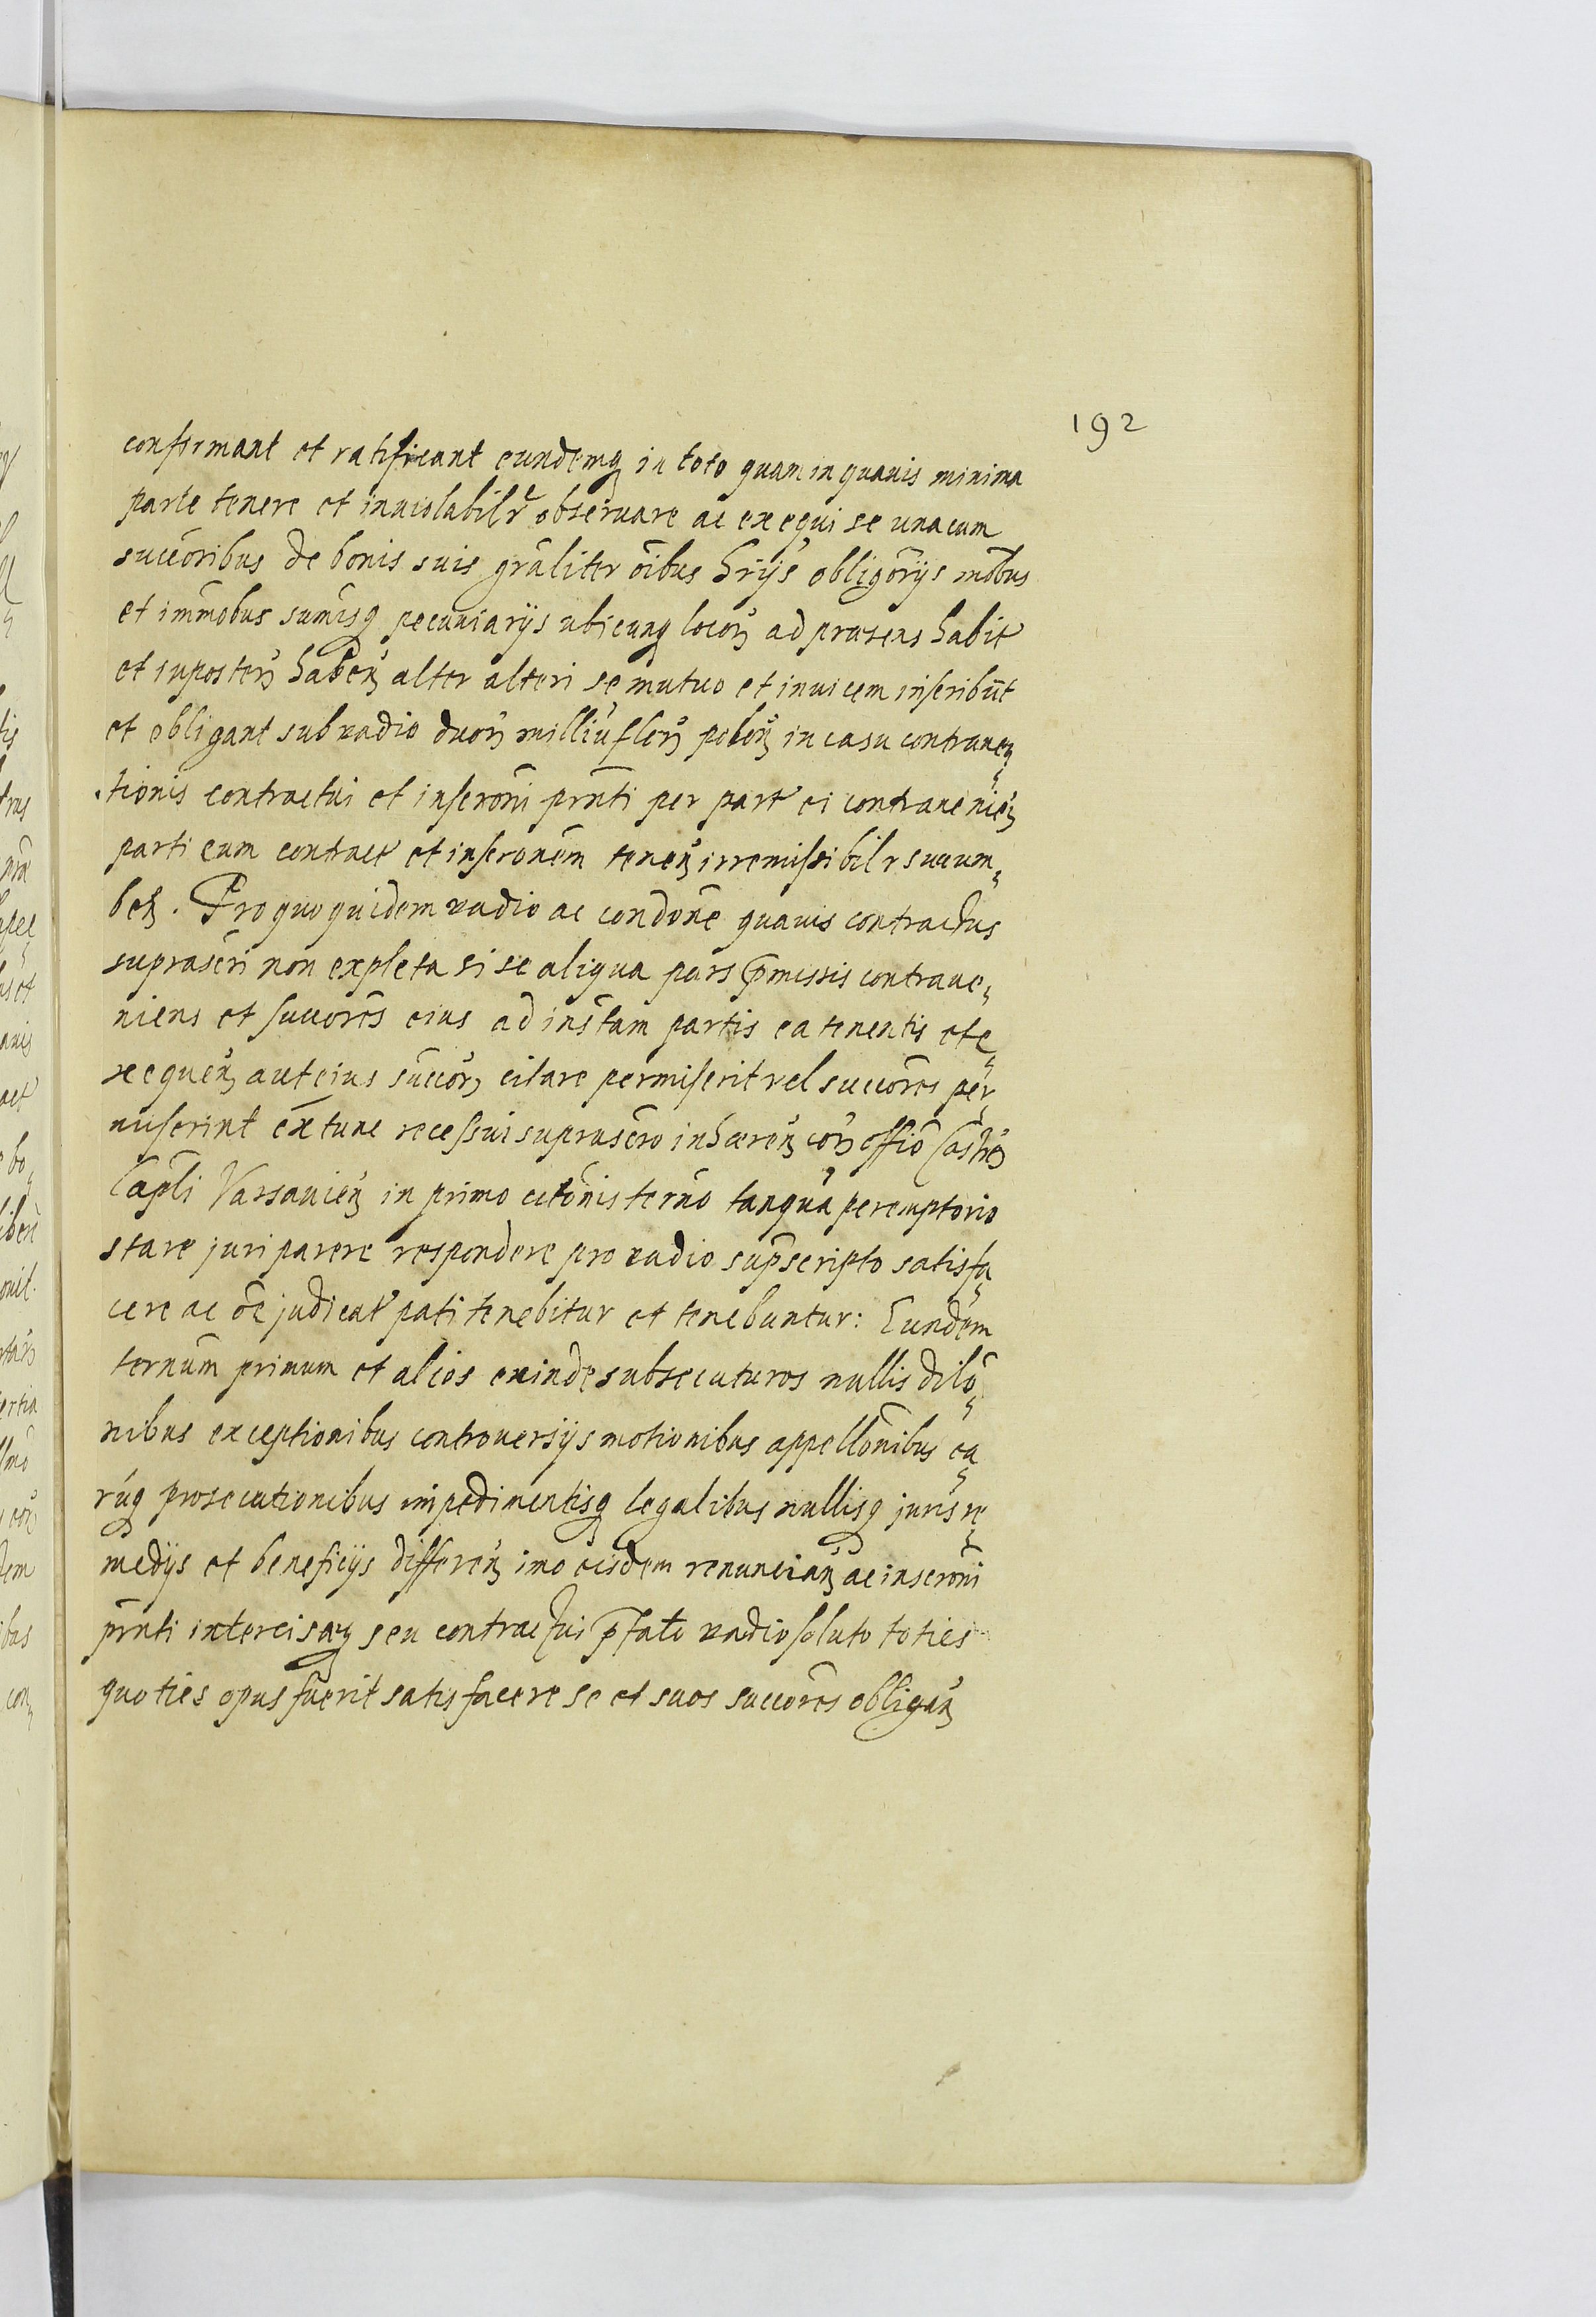 192
confirmant et ratificant eundemq in toto quam in quavis minima
parte tenere et inviolabilr observare ac exequi se unacum
succoribus de bonis suis grãliter õibus hrijs obligõrijs mõbus
et immõbus sumisq pecuniarijs ubicunq locorz ad præsens habit
et inposterz habenz alter alteri se mutuo et invicem inscribũt
et obligant sub vadio duorz milliu florz polonz in casu contraven
tionis contractui et inscrõni prñti per part ei contravenienz
parti eam contract et inscronẽm tenenz irremissibilr succum
benz. Pro quo quidem vadio ac condõne quavis contractus
suprascri non expleta si se aliqua pars p̃missis contrave
niens et succorẽs eius ad instam partis ea tenentis et e
xequenz aut eius succorz citare permiserit vel succorẽs per
miserint extunc recessui suprascro inhærenz corz offio Castrẽ
Capli Varsavienz in primo citõnis termo tanqua peremptorio
stare juri parere respondere pro vadio sup̃scripto satisfa
cere ac õe judicat pati tenebitur et tenebuntur: Eundem
ternum primum et alios exinde subsecuturos nullis dilõ
nibus exceptionibus controversijs motionibus appellõnibus ea
rúq prosecutionibus impedimentisq legalibus nullisq juris re
medijs et beneficijs differenz imo eisdem renuncianz ac inscrõni
prñti intercisæq seu contractui p̃fato vadio soluto toties
quoties opus fuerit satisfacere se et suos succorẽs obliganz